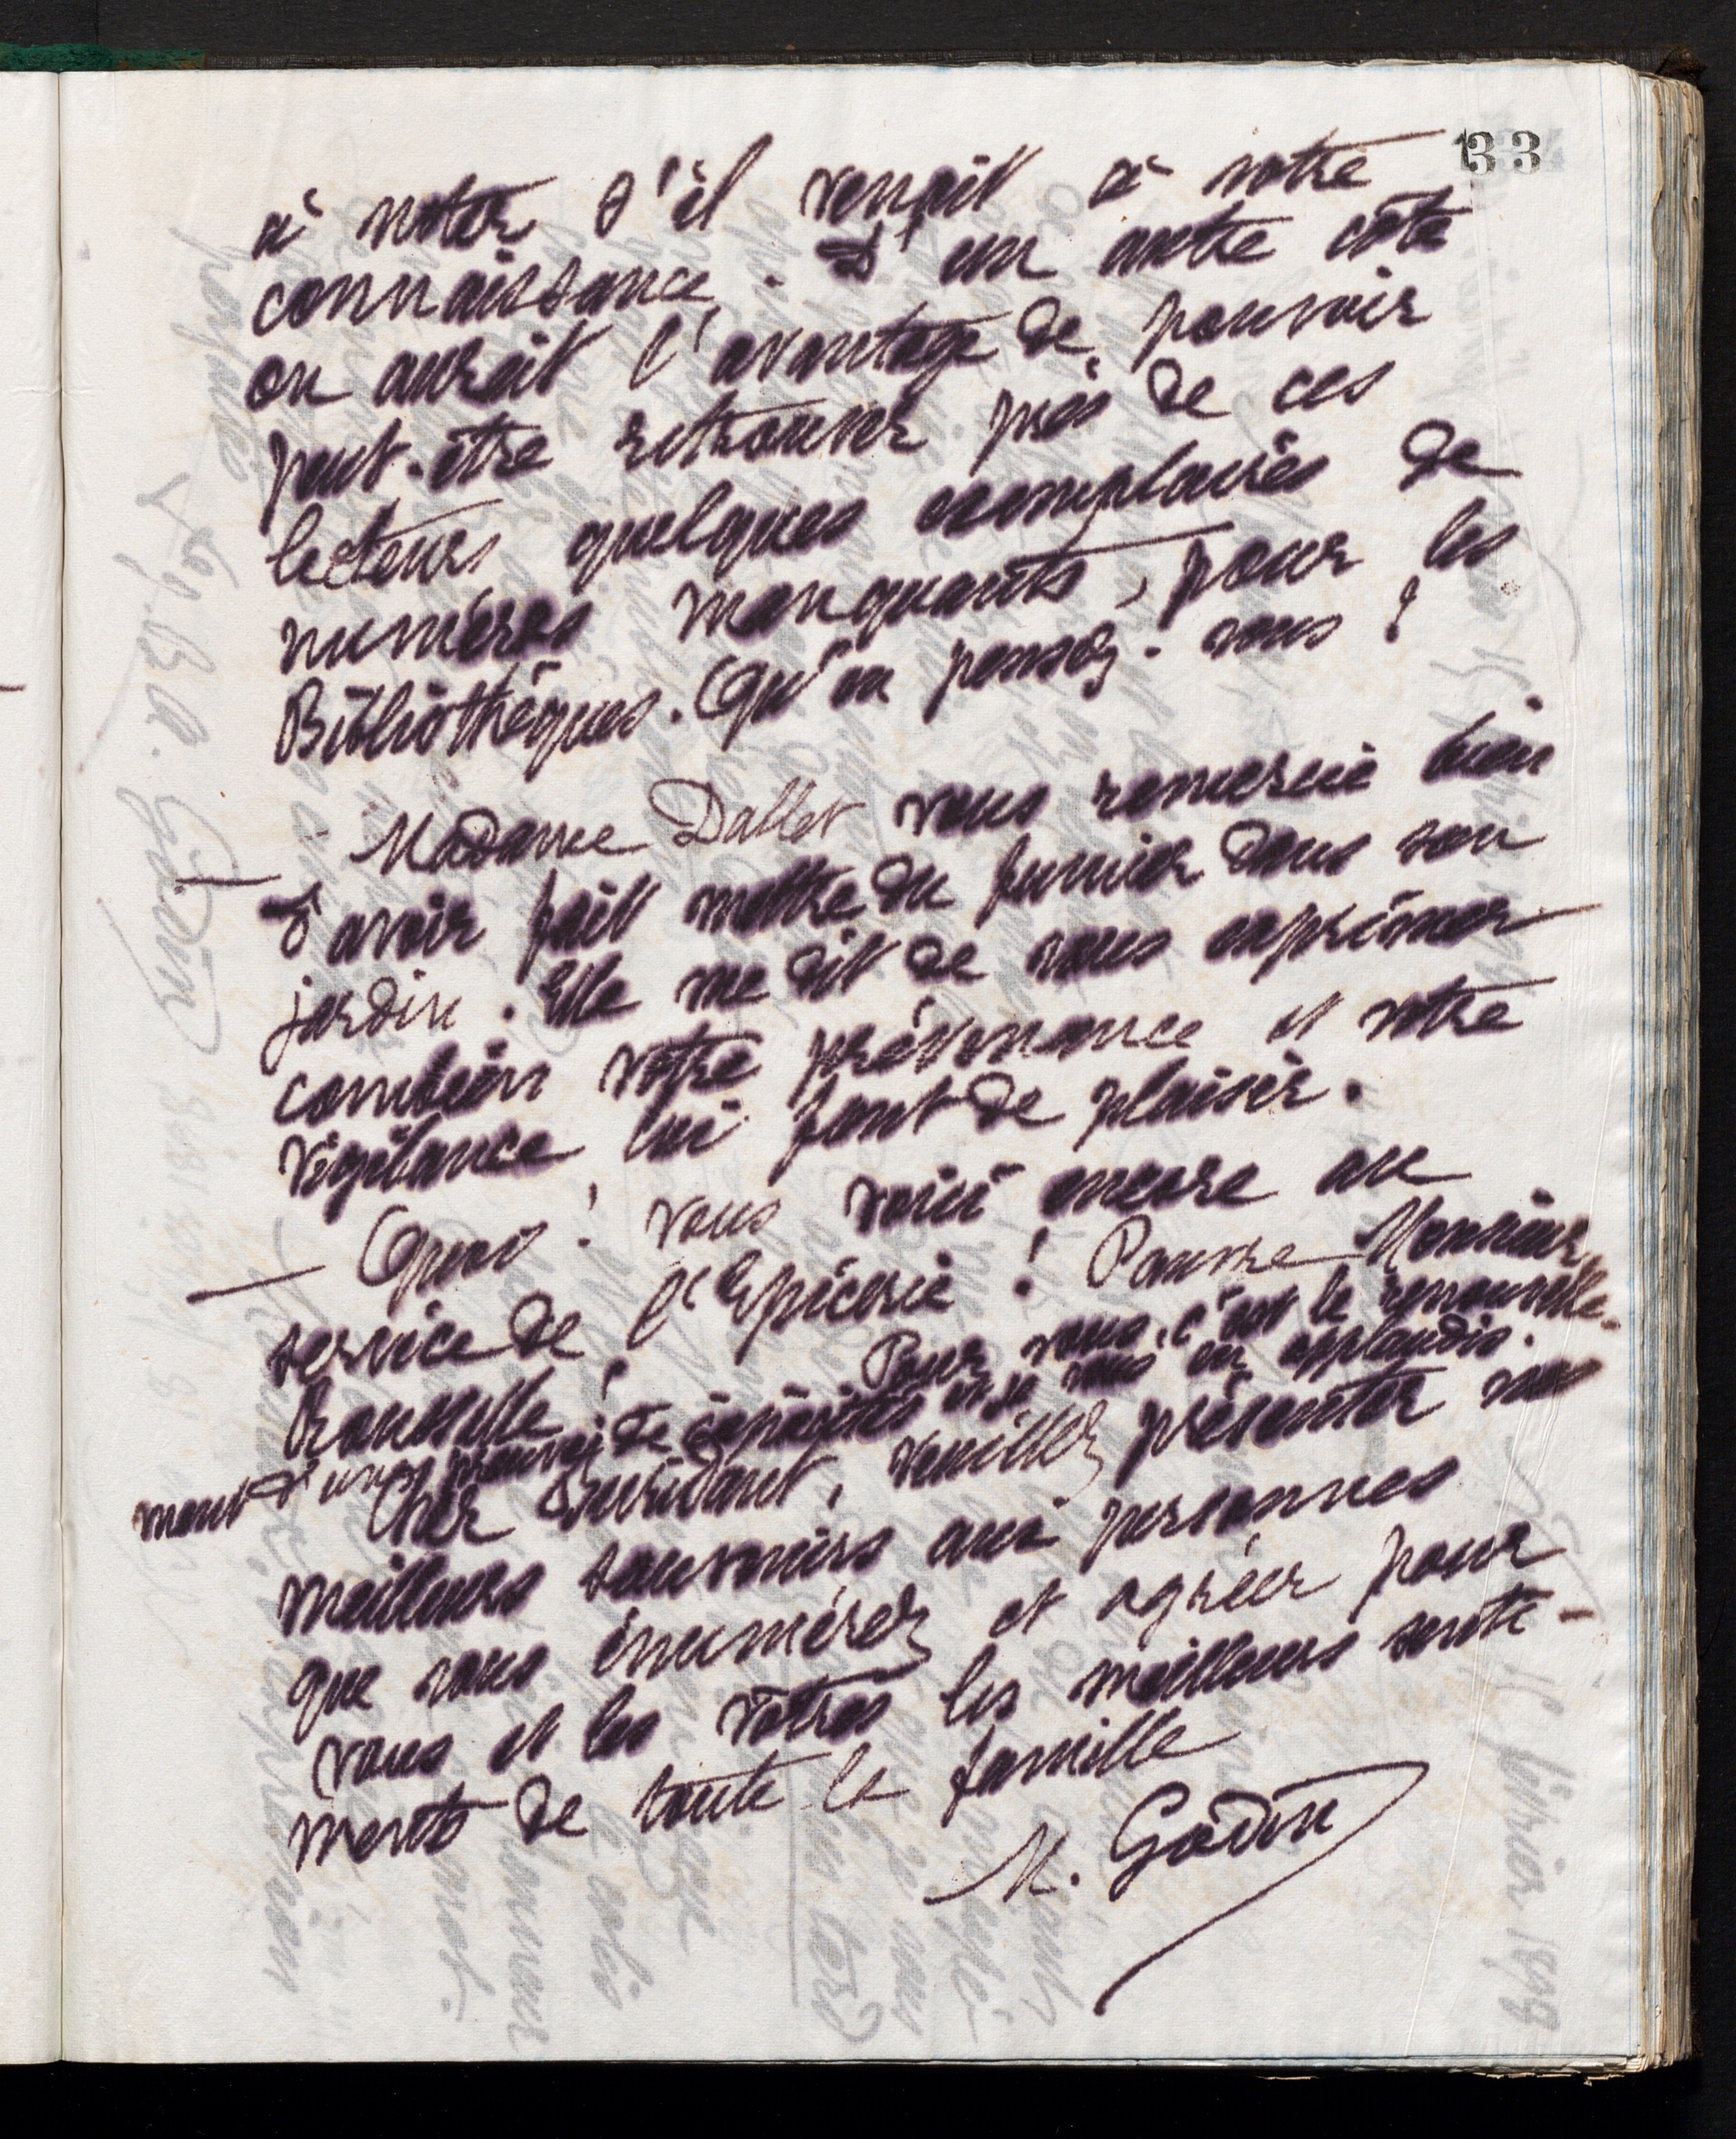 133
à noter s'il venait à notre
connaissance. D'un autre côté
on aurait l'avantage de pouvoir
peut-être retrouver près de ces
lecteurs quelques exemplaires de
numéros manquants, pour les
Bibliothèques. Qu'en pensez-vous ?
— Madame Dallet vous remercie bien
d'avoir fait mettre du fumier dans son
jardin. Elle me dit de vous exprimer
combien votre prévenance et votre
vigilance lui font de plaisir.
— Quoi ! vous voici encore au
service de l'Epicerie ! Pauvre Monsieur
Rousselle ! Pour vous, c'est le renouvelle-
ment d'une preuve de capacités et je vous en applaudis.
Cher Buridant, veuillez présenter nos
meilleurs souvenirs aux personnes
que vous énumérez et agréer pour
vous et les vôtres les meilleurs senti-
ments de toute la famille
M. Godin